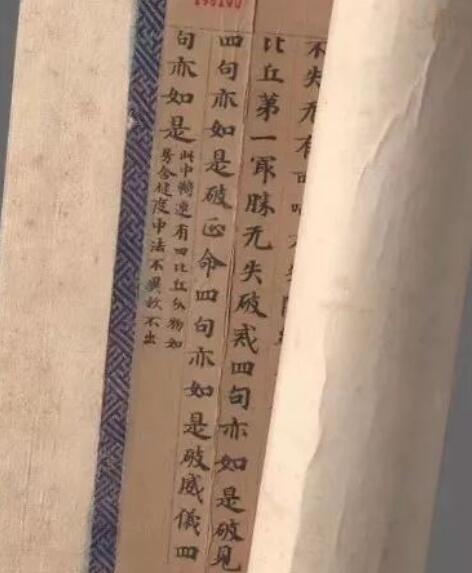 不失无有
比丘第一冣勝无失破戒四句亦如是破見
四句亦如是破正命四句亦如是破威儀四
句亦如是
此中有四比丘分物如
房舍揵度中法不異故不出